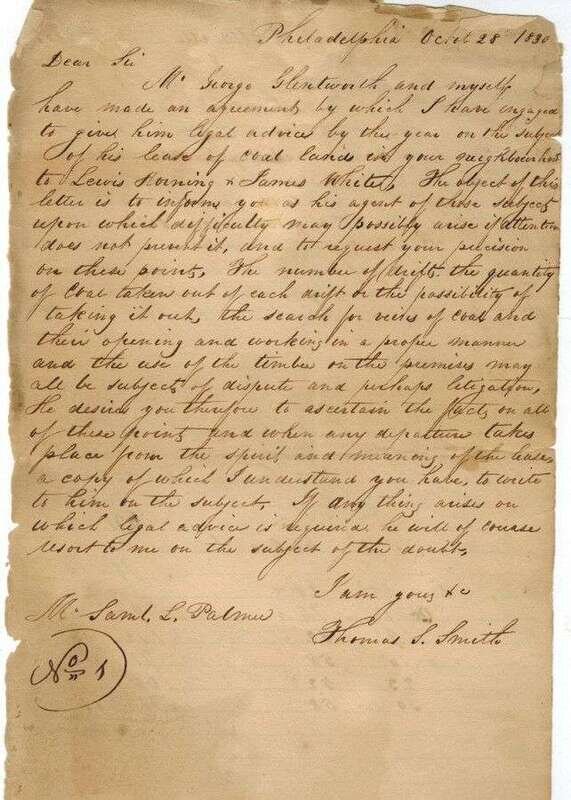 Philadelphia Octr 28 1830
Dear Sir
Mr George Glentworth and myself
have made an agreement by which I have engaged
to give him legal advice by the year on the subject
of his lease of coal lands in your neighbourhood
to Lewis Horning & James White, The object of this
letter is to inform you as his agent of those subjects
upon which difficulty may possibly arise if attention
does not prevent it, and to request your precision
on these points, The number of drifts the quantity
of coal taken out of each drift or the possibility of
taking it out, the search for veins of coal and
their opening and working in a proper manner
and the use of the timber on the premises may
all be subjects of dispute and perhaps litigation,
He desires you therefore to ascertain the facts on all
of these points and when any departure takes
place from the spirit and meaning of the lease,
a copy of which I understand you have, to write
to him on the subject, If any thing arises on
which legal advice is required he will of course
resort to me on the subject of the doubt,
I am yours &c
Mr Saml. L. Palmer
Thomas S. Smith
No 1